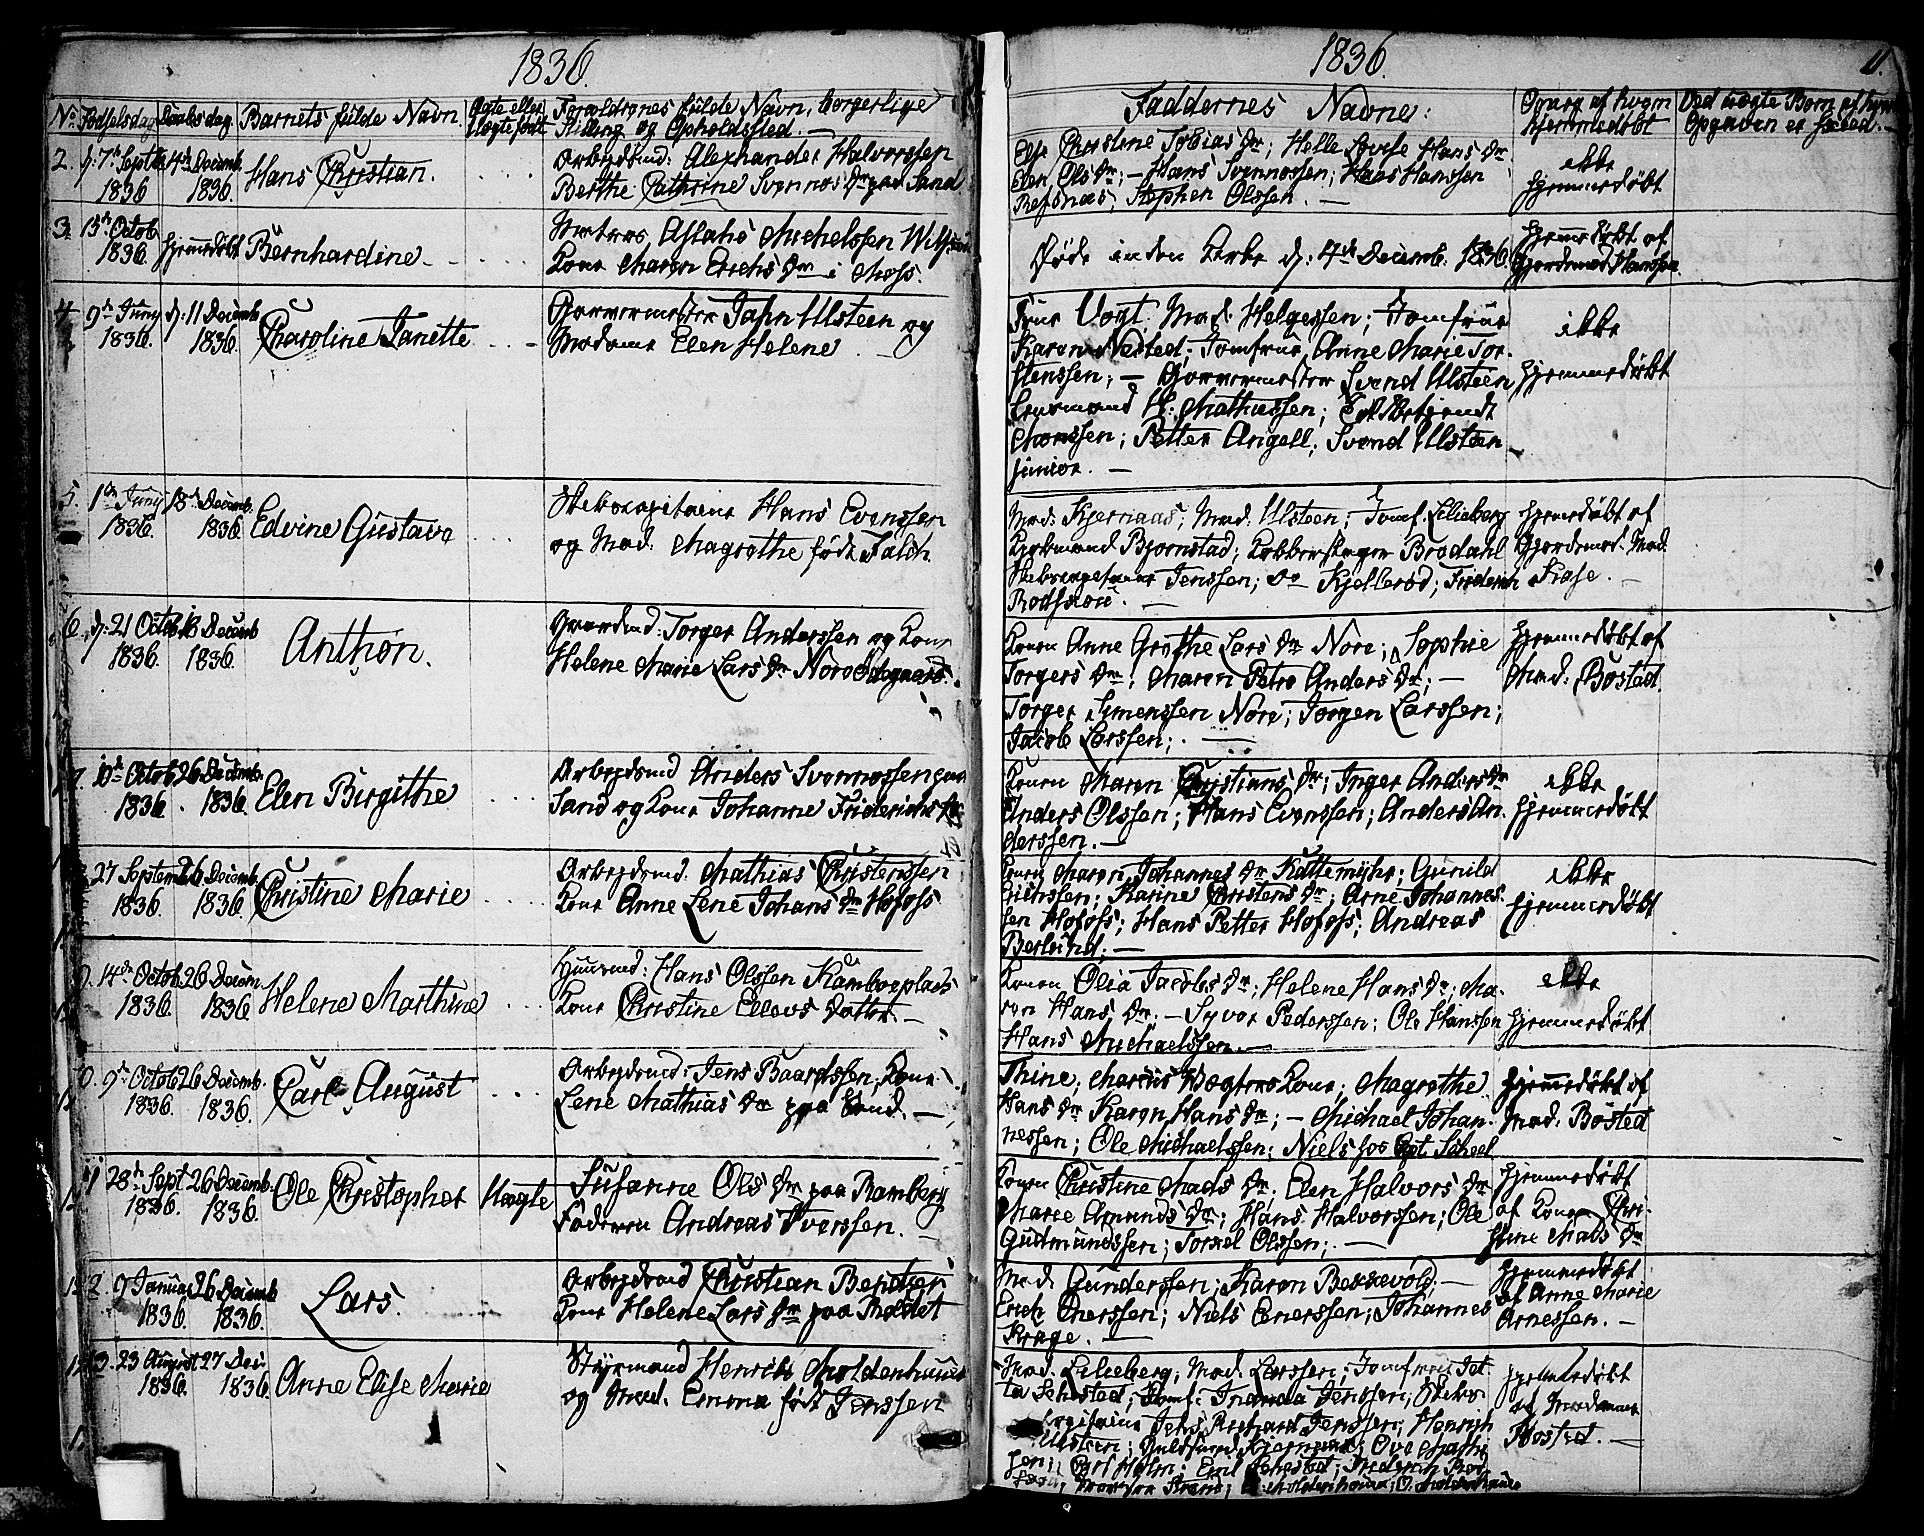 1836
No Fødselsdag Daabsdag. Barnets fulde Navn. Ægte eller Uægte født Forældrenes fulde Navn, borgerlige Stilling og Opholdssted. —
2. d: 7de Septbr 1836 4de Decemb. 1836. Hans Christian. . . . .
Arbejdsmd: Alexander Halvorssen
Berthe Cathrine Svennos Dr paa Sand
3. 13de Octob 1836. Hjemmedøbt Bernhardine. . . . .
Aslaks Michelssen
Kone Maren Erichs Dr i Moss.
4 9de Juny 1836. d: 11 Decemb 1836. Charoline Janette . . . .
Garvermester Jahn Ulsteen og
Madame Elen Helene. —
5. 1ste Juny 1836. 18de Decemb. 1836. Edvine Gustava . . . .
Skibscapitaine Hans Evenssen
og Mad. Magrethe født Falch.
6. d: 21 Octob 1836. 18 Decemb 1836. Anthon.
Gaardmd: Torger Anderssen og Kone
Helene Marie Lars Dr Nore Ødegaard.
7. 10de Octob 1836. 26 Decemb. 1836. Elen Birgithe . . . .
Arbejdsmd Anders Svennossen paa
Sand og Kone Johanne Friderichs Dr
27 Septemb 1836. 26 Decemb. 1836. Christine Marie . . . .
Arbejdsmd. Mathias Christenssen
Kone Anne Lene Johans Dr Hofoss
9. 14de Octob 1836. 26 Decem. 1836. Helene Marthine . . . .
Huusmd: Hans Olssen Kamboeplads
Kone Christine Ellevs Datter —
0. 9de Octob 1836. 26 Decemb. 1836. Carl August . . . .
Arbejdsmd: Jens Baardssen, Kone
Lene Mathias Dr paa Sand. —
11 28de Sept 1836. 26 Decemb. 1836. Ole Christopher Uægte
Susanne Ols Dr paa Ramberg
Faderen Andreas Iverssen. —
12. 9 Januar 1836. 26 Decemb 1836. Lars.
Arbejdsmd Christian Bendtsen
Kone Helene Lars Dr paa
13. 23 August 1836. 27 Dec. 1836. Anne Elise Marie
Styrmand Henrich Moldenhauer
og Mad. Emma født Jenssen
1836. 11.
Faddernes Navne: Opgave af hvem hjemmedøbt Ved uægte Børn af hvem Opgaven er skeed. —
Else Christine Tobias Dr; Helle Lovise Hans Dr.
Elen Ols Dr; — Hans Svennossen; Haas Hanssen
Refsnæs; Stephen Olssen. —
ikke
hjemmedøbt
Døde inden Kirke d: 4de Decemb. 1836.
hjemmedøbt af
Gjordemod: Hanssen.
Frue Vogt. Mad. Helgessen; Jomfrue
Karen Nested; Jomfrue Anne Marie Tor-
stenssen; — Garvermester Svend Ulsteen
H: Mathiessen;
Monssen; Petter Angell; Svend Ulsteen
junior. —
ikke
hjemmedøbt
Mad. Kjernaas; Mad. Ulsteen; Jomf. Lilieberg
Kjøbmand Bjørnstad; Kobberslager Brødahl
Skibscapitaine Jenssen; do Kjellerød; Friderich
—
hjemmedøbt af
Gjordemod. Mad.
Krose. —
Konen Anne Grethe Lars Dr Nore; Sophie
Torgers Dr; Maren Petro Anders Dr; —
Torger Simenssen Nore; Jørgen Larssen;
Jacob Larssen; —
hjemmedøbt af
Mad: Bosted.
Konen Maren Christians Dr; Inger Anders Dr
Anders Olssen; Hans Evenssen; Anders An-
derssen. —
ikke
hjemmedøbt
Konen Maren Johannes Dr Kattemyhr; Gunild
Erichssen; Karine Christens Dr; Arne Johannes-
sen Hofoss; Hans Petter Hofoss; Andreas
Berlund; —
ikke
hjemmedøbt
Konen Olia Jacobs Dr; Helene Hans Dr; Ma-
ren Hans Dr. — Syver Pederssen; Ole Hanssen
Hans Michaelssen. —
ikke
hjemmedøbt
Thine; Marcus Vægters Kone; Magrethe
Hans Dr Karen Hans Dr; — Michael Johan-
nessen; Ole Michaelssen; Niels hos Capt Scheel
hjemmedøbt af
Mad. Bosted
Konen Christine Mads Dr; Elen Halvors Dr
Marie Amunds Dr; Hans Halvorssen; Ole
Gudmundssen; Torkel Olssen; —
hjemmedøbt
af Konen Chri-
stine Mads Dr
Mad. Gunderssen; Karen Bekkevold; —
Erich Enerssen; Niels Enerssen; Johannes
Krage. —
hjemmedøbt
af Anne Marie
Arnessen. —
Mad. Lilieberg; Mad. Larssen; Jomfrue Jet-
ta Sehested; Jomf. Jenssen; Skibs-
capitaine Jens Jenssen; Henrich
Ulsteen; Guldsmed Kjernaas; Ove Mathi-
sen; Carl Holm; Emil Sehested; Frederich
hjemmedøbt
af Madame
Bosted. —